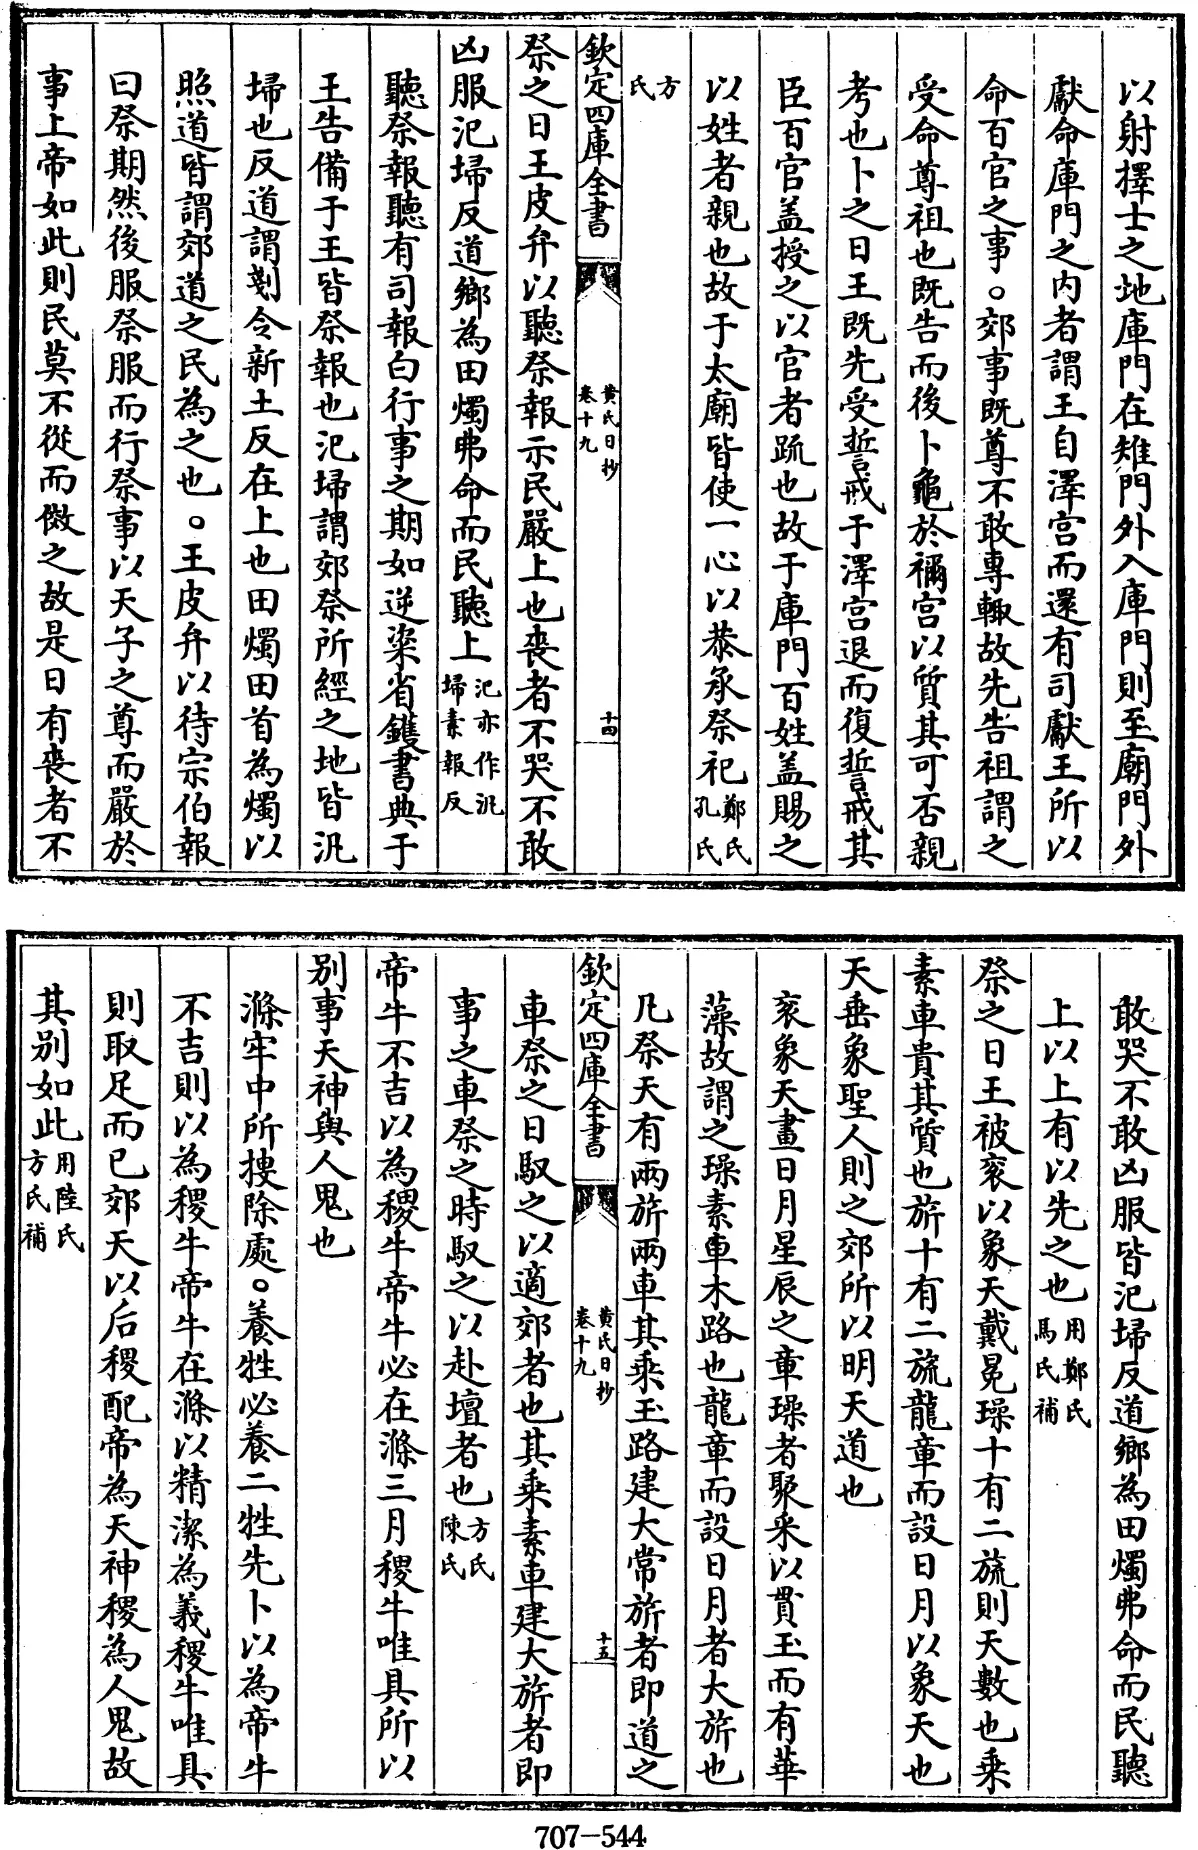 以射擇士之地庫門在雉門外入庫門則至廟門外
獻命庫門之内者謂王自澤宫而還有司獻王所以
命百官之事。郊事既尊不敢專輙故先告祖謂之
受命尊祖也既告而後卜龜於禰宫以質其可否親
考也卜之日王既先受誓戒于澤宫退而復誓戒其
臣百官盖授之以官者疏也故于庫門百姓盖賜之
以姓者親也故于太廟皆使一心以恭承祭祀鄭氏孔氏
方氏
欽定四庫全書
黄氏日抄
卷十九
十四
祭之日王皮弁以聽祭報示民嚴上也喪者不哭不敢
凶服氾埽反道鄉為田燭弗命而民聽上氾亦作汎埽素報反
聽祭報聽有司報白行事之期如逆粢省鑊書典于
王告備于王皆祭報也氾埽謂郊祭所經之地皆汎
埽也反道謂剗令新土反在上也田燭田首為燭以
照道皆謂郊道之民為之也。王皮弁以待宗伯報
曰祭期然後服祭服而行祭事以天子之尊而嚴於
事上帝如此則民莫不從而傚之故是日有喪者不
敢哭不敢凶服皆氾埽反道鄉為田燭弗命而民聽
上以上有以先之也用鄭氏馬氏補
祭之日王被衮以象天戴冕璪十有二旒則天數也乘
素車貴其質也旂十有二旒龍章而設日月以象天也
天垂象聖人則之郊所以明天道也
衮象天畫日月星辰之章璪者聚采以貫玉而有華
藻故謂之璪素車木路也龍章而設日月者大旂也
凡祭天有兩旂兩車其乘玉路建大常旂者即道之
欽定四庫全書
黄氏日抄
卷十九
十五
車祭之日馭之以適郊者也其乘素車建大旂者即
事之車祭之時馭之以赴壇者也方氏陳氏
帝牛不吉以為稷牛帝牛必在滌三月稷牛唯具所以
别事天神與人鬼也
滌牢中所搜除處。養牲必養二牲先卜以為帝牛
不吉則以為稷牛帝牛在滌以精潔為義稷牛唯具
則取足而已郊天以后稷配帝為天神稷為人鬼故
其别如此用陸氏方氏補
707-544